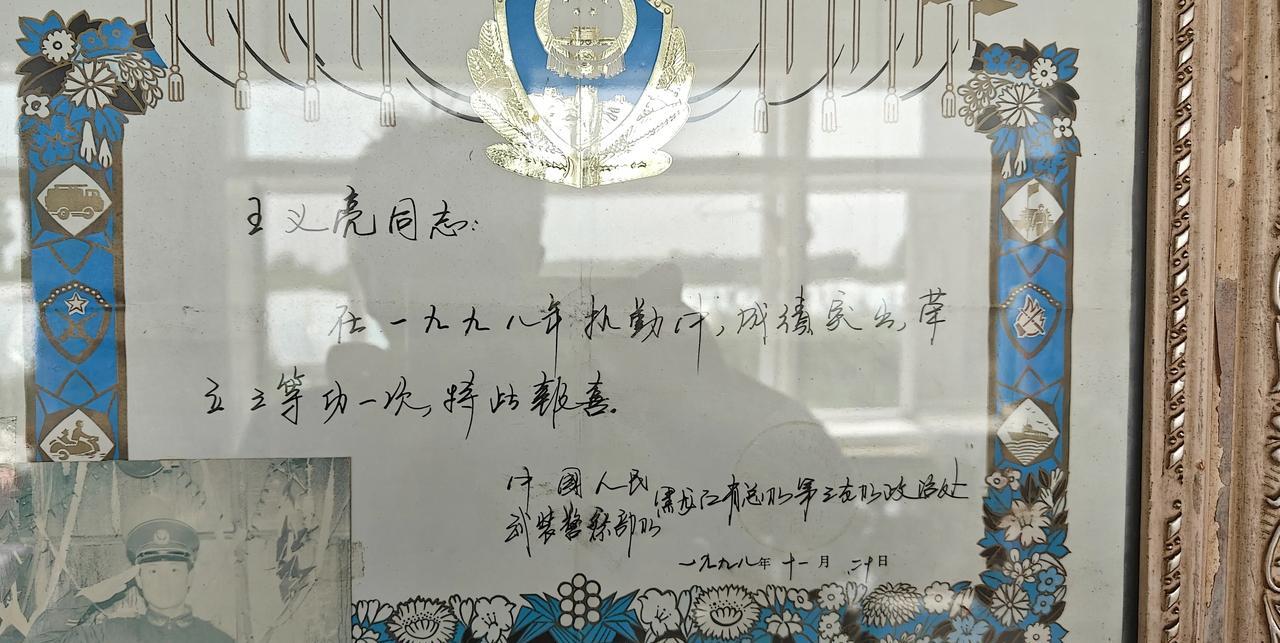 王义亮同志:
在一九九八年执勤中,成绩突出,荣
立三等功一次,特此報喜.
中國人民
武装警察部队
黑龙江省总队第三支队政治处
一九九八年十一月二十日